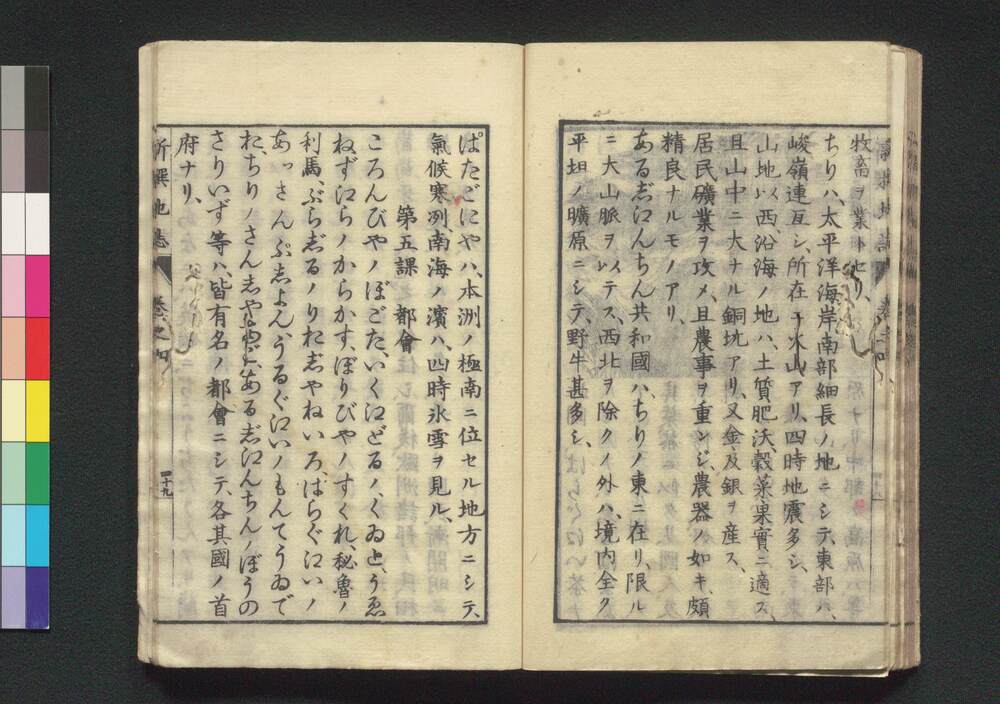 牧畜ヲ業トセリ、
ちりハ、太平洋海岸南部細長ノ地ニシテ、東部ハ、
峻嶺連亙シ、所在ニ火山アリ、四時地震多シ、
山地ハ、西、沿海ノ地ハ、土質肥沃、穀菜果實ニ適ス、
且山中ニ大ナル銅坑アリ、又金及銀ヲ産ス、
居民礦業ヲ攻メ、且農事ヲ重ンジ、農器ノ如キ、頗
精良ナルモノアリ、
ある志江んちん共和國ハ、ちりノ東ニ在リ、限ル
ニ大山脈ヲ以テス、西北ヲ除クノ外ハ、境内全ク
平坦ノ曠原ニシテ、野牛甚多シ、
ぱたごにやハ、本洲ノ極南ニ位セル地方ニシテ、
氣候寒冽、南海ノ濱ハ、四時氷雪ヲ見ル、
第五課 都會
ころんびやノぼごた、いくゑどるノくゐと、うゑ
ねずゑらノからかす、ぼりびやノすくれ、秘魯ノ
利馬、ぶら志るノりお志やねいろ、ぱらぐゑいノ
あっさんぷ志よん、うるぐゑいノもんてうゐで
お、ちりノさん志やご、ある志江んちんノぼうの
さりいず等ハ、皆有名ノ都會ニシテ、各其國ノ首
府ナリ、
新撰地誌
卷之四
四十九